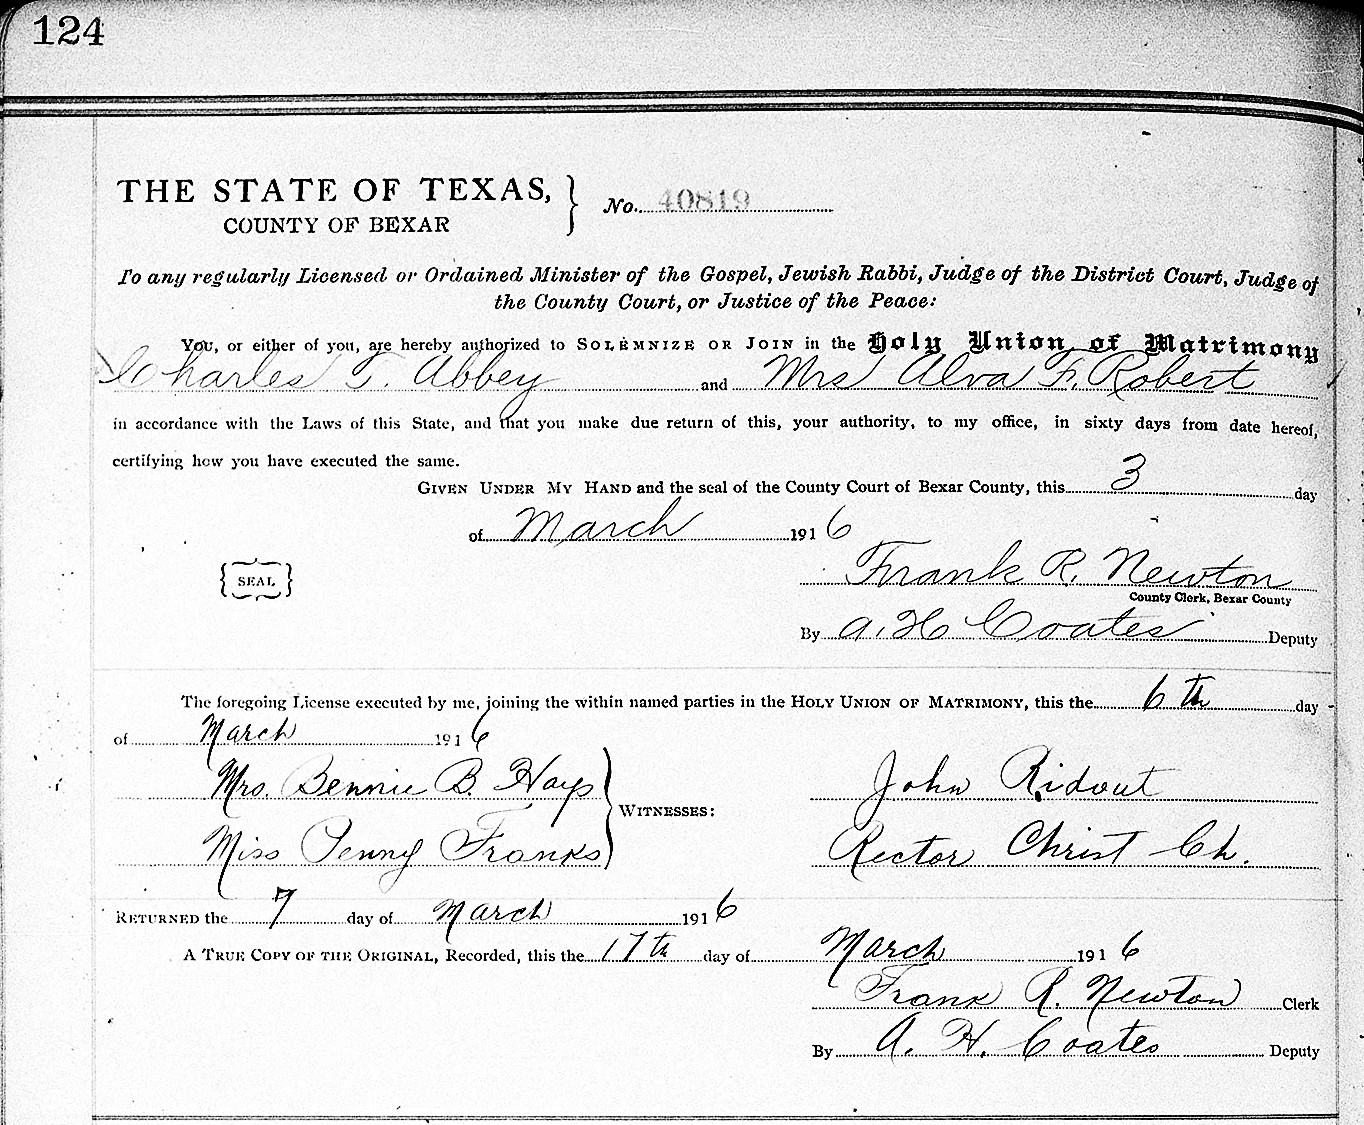 124
THE STATE OF TEXAS, } No. 40819
COUNTY OF BEXAR
To any regularly Licensed or Ordained Minister of the Gospel, Jewish Rabbi, Judge of the District Court, Judge of
the County Court, or Justice of the Peace:
You, or either of you, are hereby authorized to SOLEMNIZE OR JOIN in the Holy Union of Matrimony
Charles T. Abbey and Mrs Alva F. Robert
in accordance with the Laws of this State, and that you make due return of this, your authority, to my office, in sixty days from date hereof,
certifying how you have executed the same.
GIVEN UNDER MY HAND and the seal of the County Court of Bexar County, this 3 day
of March 1916
{SEAL}
Frank R. Newton
County Clerk, Bexar County
By A. H Coates Deputy
The foregoing License executed by me, joining the within named parties in the HOLY UNION OF MATRIMONY, this the 6th day
of March 1916
Mrs. Bennie B. Hays
Miss Penny Franks
} WITNESSES:
John Ridout
Rector Christ Ch.
RETURNED the 7 day of March 1916
A TRUE COPY OF THE ORIGINAL, Recorded, this the 17th day of March 1916
Frank R. Newton Clerk
By A. H. Coates Deputy